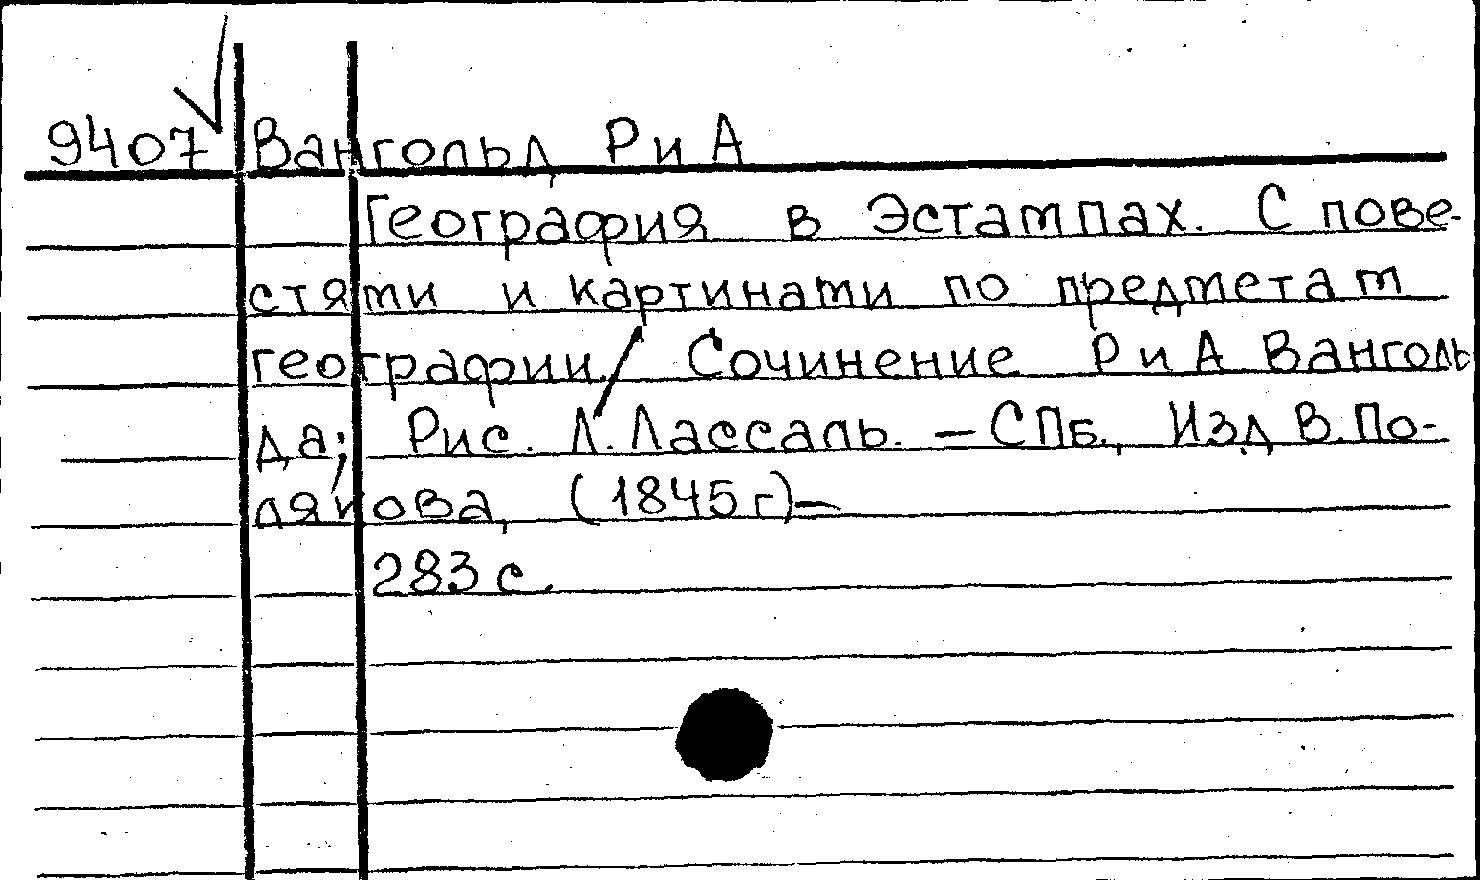 9407 Вангольд Р и А
География в Эстампах. С пове-
стями и картинами по предметам
географии / Сочинение Р и А Ванголь
да; Рис. Л. Лассаль. – СПб., Изд В. По-
лякова, (1845 г) –
283 с.